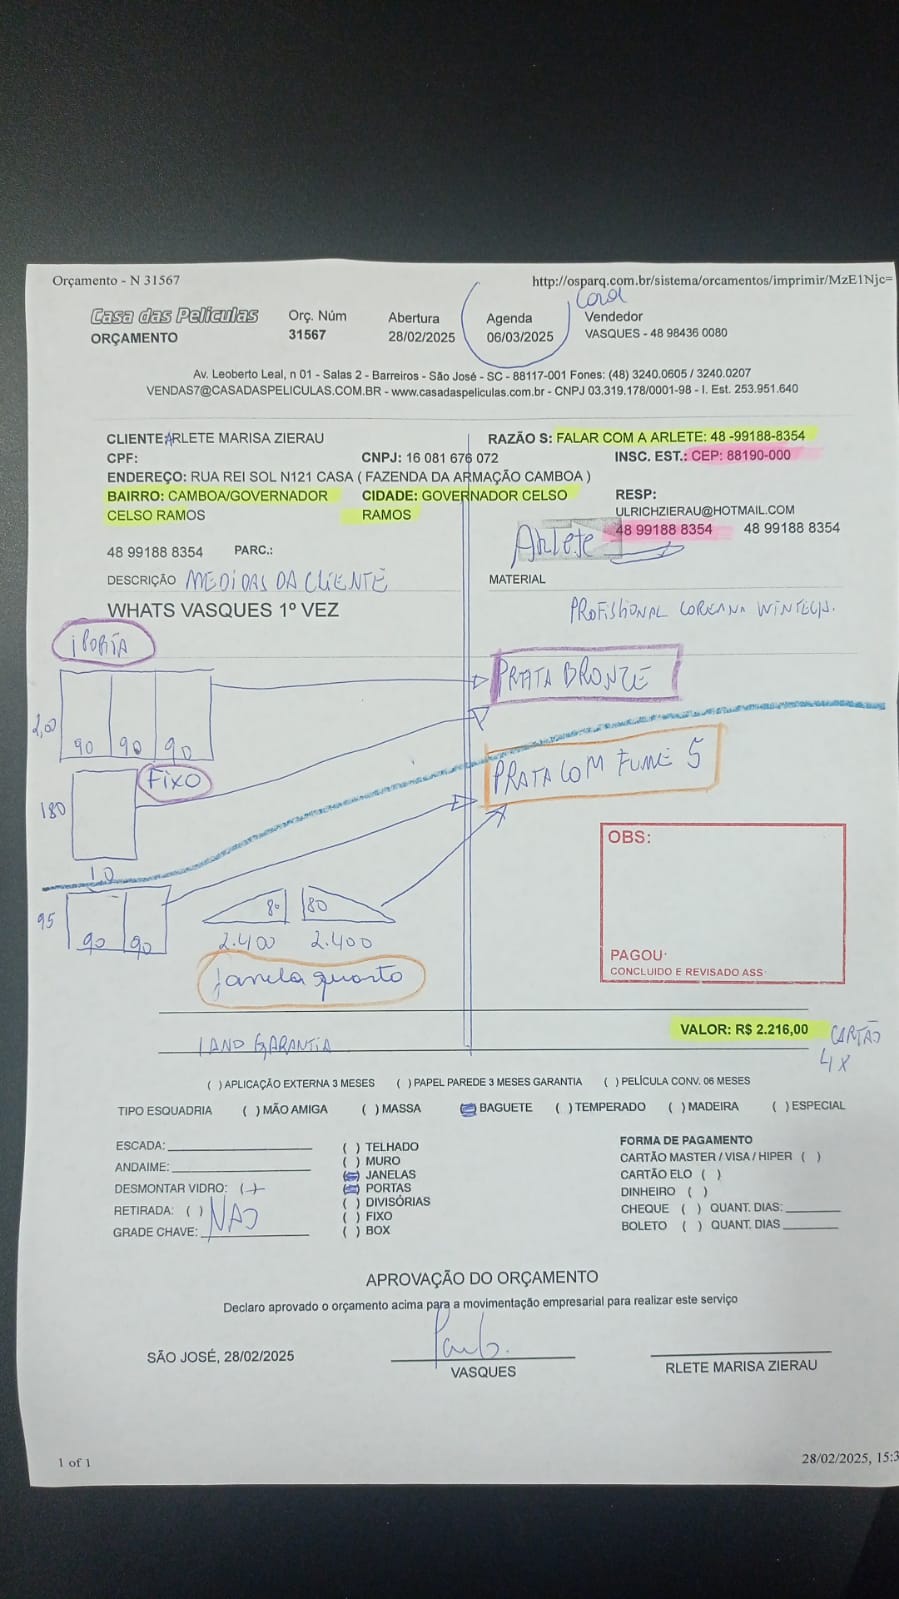 Orçamento - N 31567
http://osparq.com.br/sistema/orcamentos/imprimir/MzE1Njc=
Casa das Películas
ORÇAMENTO
Orç. Núm
31567
Abertura
28/02/2025
Agenda
06/03/2025
Vendedor
VASQUES - 48 98436 0080
Av. Leoberto Leal, n 01 - Salas 2 - Barreiros - São José - SC - 88117-001 Fones: (48) 3240.0605 / 3240.0207
VENDAS7@CASADASPELICULAS.COM.BR - www.casadaspeliculas.com.br - CNPJ 03.319.178/0001-98 - I. Est. 253.951.640
CLIENTE:ARLETE MARISA ZIERAU
RAZÃO S: FALAR COM A ARLETE: 48 -99188-8354
CPF:
CNPJ: 16 081 676 072
INSC. EST.: CEP: 88190-000
ENDEREÇO: RUA REI SOL N121 CASA ( FAZENDA DA ARMAÇÃO CAMBOA )
BAIRRO: CAMBOA/GOVERNADOR CELSO RAMOS
CIDADE: GOVERNADOR CELSO RAMOS
RESP:
ULRICHZIERAU@HOTMAIL.COM
48 99188 8354 48 99188 8354
Arlete
48 99188 8354 PARC.:
DESCRIÇÃO MEDIDAS DA CLIENTE
MATERIAL
WHATS VASQUES 1º VEZ
PROFISIONAL COREANA WINTECH.
1 PORTA
PRATA BRONZE
2,00
90 90 90
FIXO
PRATA COM FUME 5
180
1.0
95
90 90
80 80
2.400 2.400
janela quarto
OBS:
PAGOU:
CONCLUIDO E REVISADO ASS:
VALOR: R$ 2.216,00
CARTÃO
4X
1 ANO GARANTIA
( ) APLICAÇÃO EXTERNA 3 MESES ( ) PAPEL PAREDE 3 MESES GARANTIA ( ) PELÍCULA CONV. 06 MESES
TIPO ESQUADRIA ( ) MÃO AMIGA ( ) MASSA ( ) BAGUETE ( ) TEMPERADO ( ) MADEIRA ( ) ESPECIAL
ESCADA:
ANDAIME:
DESMONTAR VIDRO: ( )
RETIRADA: ( ) NAO
GRADE CHAVE:
( ) TELHADO
( ) MURO
( ) JANELAS
( ) PORTAS
( ) DIVISÓRIAS
( ) FIXO
( ) BOX
FORMA DE PAGAMENTO
CARTÃO MASTER / VISA / HIPER ( )
CARTÃO ELO ( )
DINHEIRO ( )
CHEQUE ( ) QUANT. DIAS:
BOLETO ( ) QUANT. DIAS
APROVAÇÃO DO ORÇAMENTO
Declaro aprovado o orçamento acima para a movimentação empresarial para realizar este serviço
SÃO JOSÉ, 28/02/2025
VASQUES
RLETE MARISA ZIERAU
1 of 1
28/02/2025, 15:3